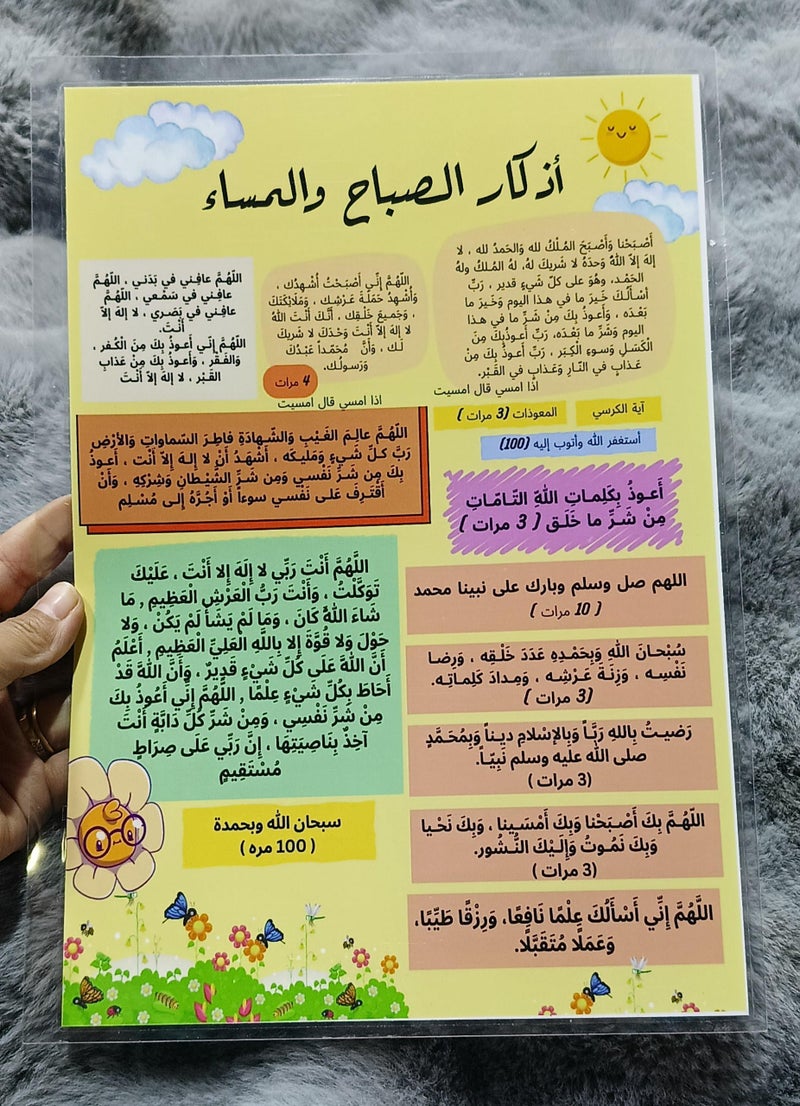 أذكار الصباح والمساء
أَصْبَحْنا وَأَصْبَحَ المُلْكُ لله وَالحَمدُ لله ، لا
إلهَ إلاّ اللّهُ وَحدَهُ لا شَريكَ لهُ، لهُ المُلكُ ولهُ
الحَمْد، وهُوَ على كلّ شَيءٍ قدير ، رَبِّ
أسْأَلُكَ خَيرَ ما في هذا اليوم وَخَيرَ ما
بَعْدَه ، وَأَعوذُ بِكَ مِنْ شَرِّ ما في هذا
اليوم وَشَرِّ ما بَعْدَه، رَبِّ أَعوذُبِكَ مِنَ
الْكَسَلِ وَسوءِ الْكِبَر ، رَبِّ أَعوذُ بِكَ مِنْ
عَذابٍ في النّارِ وَعَذابٍ في القَبْر.
اذا امسي قال امسيت
اللّهُمَّ إِنِّي أَصْبَحْتُ أُشْهِدُك ،
وَأُشْهِدُ حَمَلَةَ عَرْشِك ، وَمَلَائِكَتَكَ
، وَجَميعَ خَلْقِك ، أَنَّكَ أَنْتَ اللهُ
لا إلهَ إلاّ أَنْتَ وَحْدَكَ لا شَريكَ
لَك ، وَأَنَّ مُحَمّداً عَبْدُكَ
وَرَسولُك.
4 مرات
اذا امسي قال امسيت
اللّهُمَّ عافِني في بَدَني ، اللّهُمَّ
عافِني في سَمْعي ، اللّهُمَّ
عافِني في بَصَري ، لا إلهَ إلاّ
أَنْتَ.
اللّهُمَّ إِنّي أَعوذُ بِكَ مِنَ الْكُفر ،
وَالفَقْر ، وَأَعوذُ بِكَ مِنْ عَذابِ
القَبْر ، لا إلهَ إلاّ أَنْتَ
آية الكرسي
المعوذات (3 مرات )
أستغفر الله وأتوب إليه (100)
اللّهُمَّ عالِمَ الغَيْبِ وَالشّهادَةِ فاطِرَ السّماواتِ وَالأرْضِ
رَبَّ كلِّ شَيءٍ وَمَليكَه ، أَشْهَدُ أَنْ لا إِلهَ إِلاّ أَنْت ، أَعوذُ
بِكَ مِن شَرِّ نَفْسي وَمِن شَرِّ الشَّيْطانِ وَشِرْكِه ، وَأَنْ
أَقْتَرِفَ عَلى نَفْسي سوءاً أَوْ أَجُرَّهُ إِلى مُسْلِم
أَعوذُ بِكَلِماتِ اللّهِ التّامّاتِ
مِنْ شَرِّ ما خَلَق ( 3 مرات )
اللَّهُمَّ أَنْتَ رَبِّي لا إِلَهَ إِلا أَنْتَ ، عَلَيْكَ
تَوَكَّلْتُ ، وَأَنْتَ رَبُّ الْعَرْشِ الْعَظِيمِ , مَا
شَاءَ اللَّهُ كَانَ ، وَمَا لَمْ يَشَأْ لَمْ يَكُنْ ، وَلا
حَوْلَ وَلا قُوَّةَ إِلا بِاللَّهِ الْعَلِيِّ الْعَظِيمِ , أَعْلَمُ
أَنَّ اللَّهَ عَلَى كُلِّ شَيْءٍ قَدِيرٌ ، وَأَنَّ اللَّهَ قَدْ
أَحَاطَ بِكُلِّ شَيْءٍ عِلْمًا , اللَّهُمَّ إِنِّي أَعُوذُ بِكَ
مِنْ شَرِّ نَفْسِي ، وَمِنْ شَرِّ كُلِّ دَابَّةٍ أَنْتَ
آخِذٌ بِنَاصِيَتِهَا ، إِنَّ رَبِّي عَلَى صِرَاطٍ
مُسْتَقِيمٍ
اللهم صل وسلم وبارك على نبينا محمد
( 10 مرات )
سُبْحانَ اللهِ وَبِحَمْدِهِ عَدَدَ خَلْقِه ، وَرِضا
نَفْسِه ، وَزِنَةَ عَرْشِه ، وَمِدادَ كَلِماتِه.
(3 مرات )
رَضيتُ بِاللهِ رَبًّا وَبِالإسْلامِ ديناً وَبِمُحَمَّدٍ
صلى الله عليه وسلم نَبِيّاً.
(3 مرات )
اللّهُمَّ بِكَ أَصْبَحْنا وَبِكَ أَمْسَينا ، وَبِكَ نَحْيا
وَبِكَ نَمُوتُ وَإِلَيْكَ النُّشُور.
(3 مرات )
اللَّهُمَّ إِنِّي أَسْأَلُكَ عِلْمًا نَافِعًا، وَرِزْقًا طَيِّبًا،
وَعَمَلًا مُتَقَبَّلًا.
سبحان الله وبحمدة
( 100 مره )